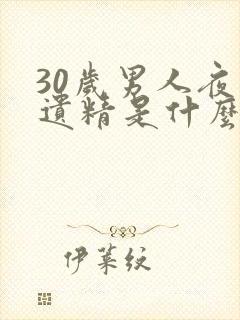 30歲男人夜
遺精是什麼
伊莱紋